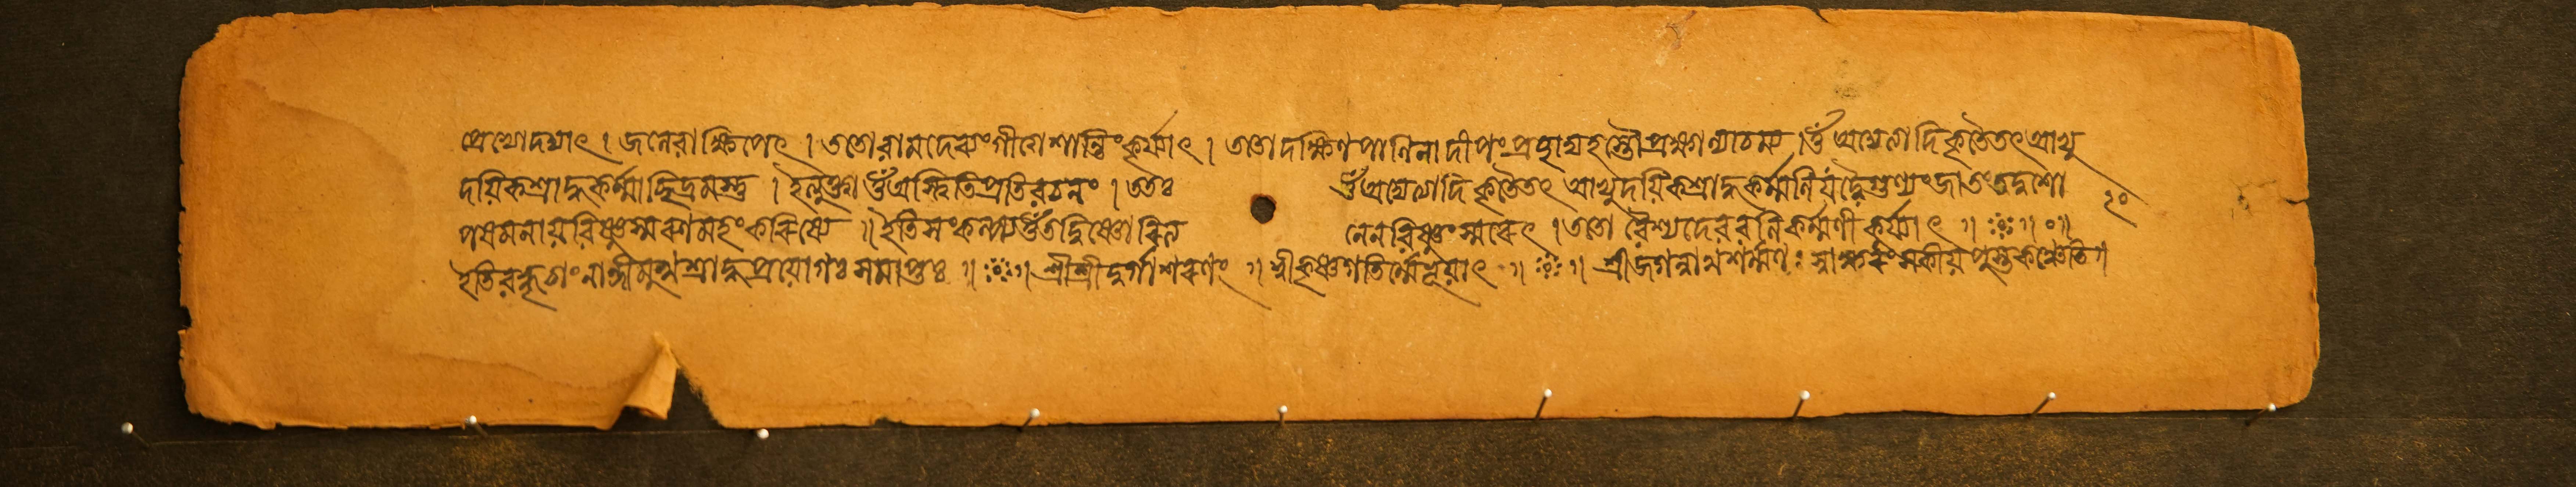 দদ্যাৎ । জলেরাক্ষিপেৎ । ততোবামদেব্যংগীত্বাশান্তিংকুর্য্যাৎ । ততোদক্ষিণপাণিনাদীপং হস্তৌ ওঁঅদ্যেত্যাদিকৃতৈতৎআভ্যু
দয়িকশ্রাদ্ধকর্ম্মাচ্ছিদ্রমস্তু । ইত্যুক্ত্বা ওঁঅস্ত্বিতিপ্রতিবচনং । ততঃ ওঁঅদ্যেত্যাদিকৃতৈতৎ আভ্যুদয়িকশ্রাদ্ধকর্ম্মণিযদ্বৈগুণ্যংজাতংতদ্দোষো ২০
পশমনায়বিষ্ণুস্মরণমহংকরিষ্যে ॥ ইতিসংকল্প্যওঁতদ্বিষ্ণো নেনবিষ্ণুংস্মরেৎ । ততো বৈশ্যদেববলিকর্ম্মণীকুর্য্যাৎ ॥ ॥ ০ ॥
ইতি শ্রাদ্ধপ্রয়োগঃ সমাপ্তঃ ॥ ॥ শ্রীশ্রীদুর্গাশরণং ॥ শ্রীকৃষ্ণগতির্ম্মেভূয়াৎ ॥ ॥ শ্রীজগন্নাথশর্ম্মণঃ স্বাক্ষরংস্বকীয়পুস্তকঞ্চেতি ।